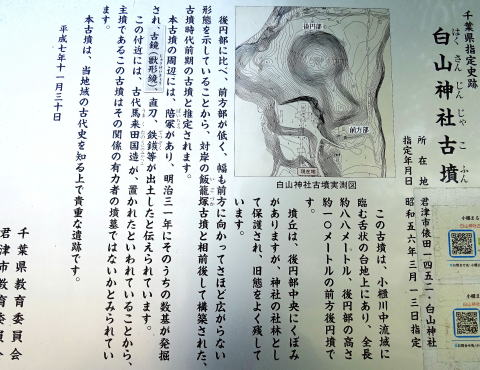 千葉県指定史跡
白山神社古墳
はくさんじんじゃこふん
所在地 君津市俵田一四五二・白山神社
指定年月日 昭和五六年三月一三日指定
この古墳は、小櫃川中流域に
臨む舌状の台地上にあり、全長
約八八メートル、後円部の高さ
約一〇メートルの前方後円墳で
す。
墳丘は、後円部中央にくぼみ
がありますが、神社の社林とし
て保護され、旧態をよく残して
います。
後円部
前方部
現在地
白山神社古墳実測図
後円部に比べ、前方部が低く、幅も前方に向かってさほど広がらない
形態を示していることから、対岸の飯籠塚古墳と相前後して構築された、
古墳時代前期の古墳と推定されます。
本古墳の周辺には、陪塚があり、明治三一年にそのうちの数基が発掘
され、古鏡(獣形鏡)、直刀、鉄鏃等が出土したと伝えられています。
この付近には、古代馬来田国造が、置かれたといわれていることから、
主墳であるこの古墳はその関係の有力者の墳墓ではないかとみられてい
ます。
本古墳は、当地域の古代史を知る上で貴重な遺跡です。
平成七年十一月三十日
千葉県教育委員会
君津市教育委員会